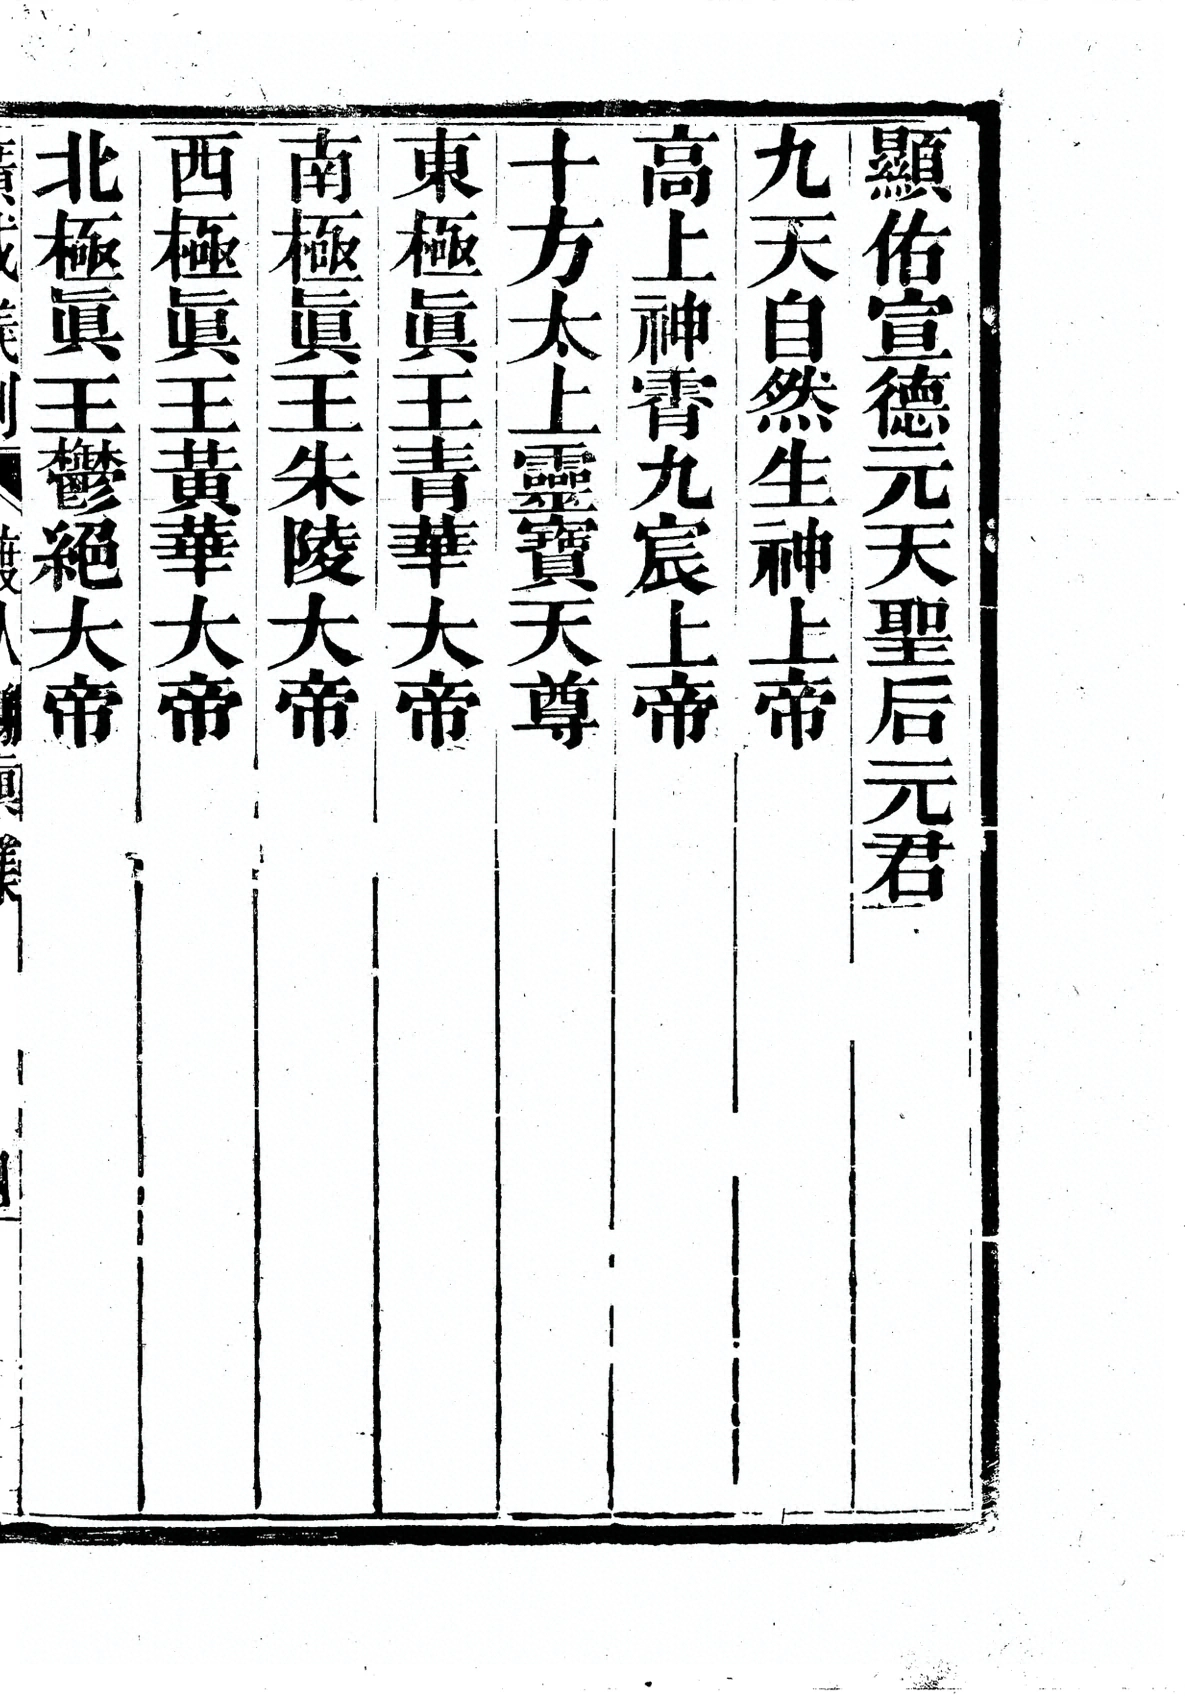 顯佑宣德元天聖后元君
九天自然生神上帝
高上神霄九宸上帝
十方太上靈寶天尊
東極眞王青華大帝
南極眞王朱陵大帝
西極眞王黃華大帝
北極眞王鬱絕大帝